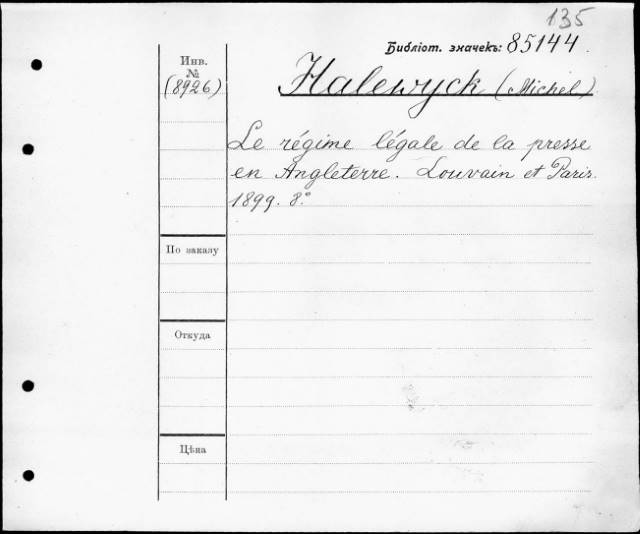 135
Библіот. значекъ: 85144.
Инв.
№
(8926)
Halewyck (Michel)
Le régime légale de la presse
en Angleterre. Louvain et Paris.
1899. 8.°
По заказу
Откуда
Цѣна